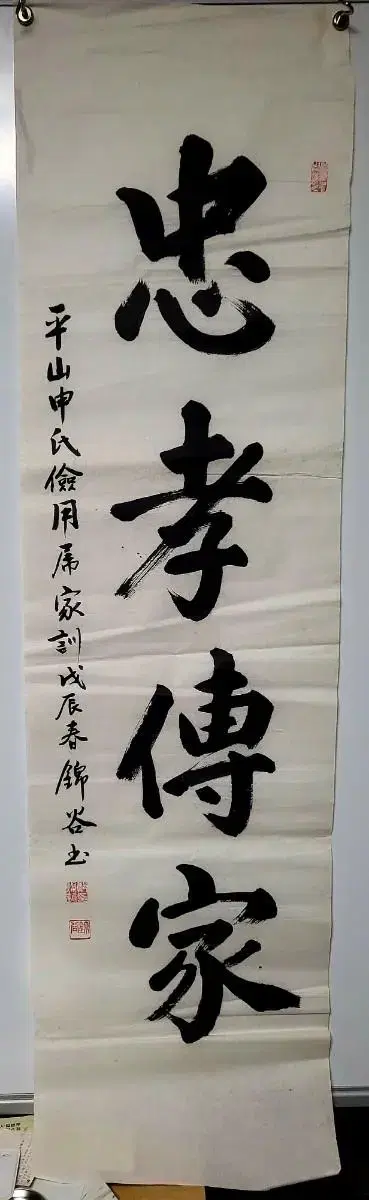 忠孝傳家
平山申氏儉用屬家訓戊辰春錦谷書